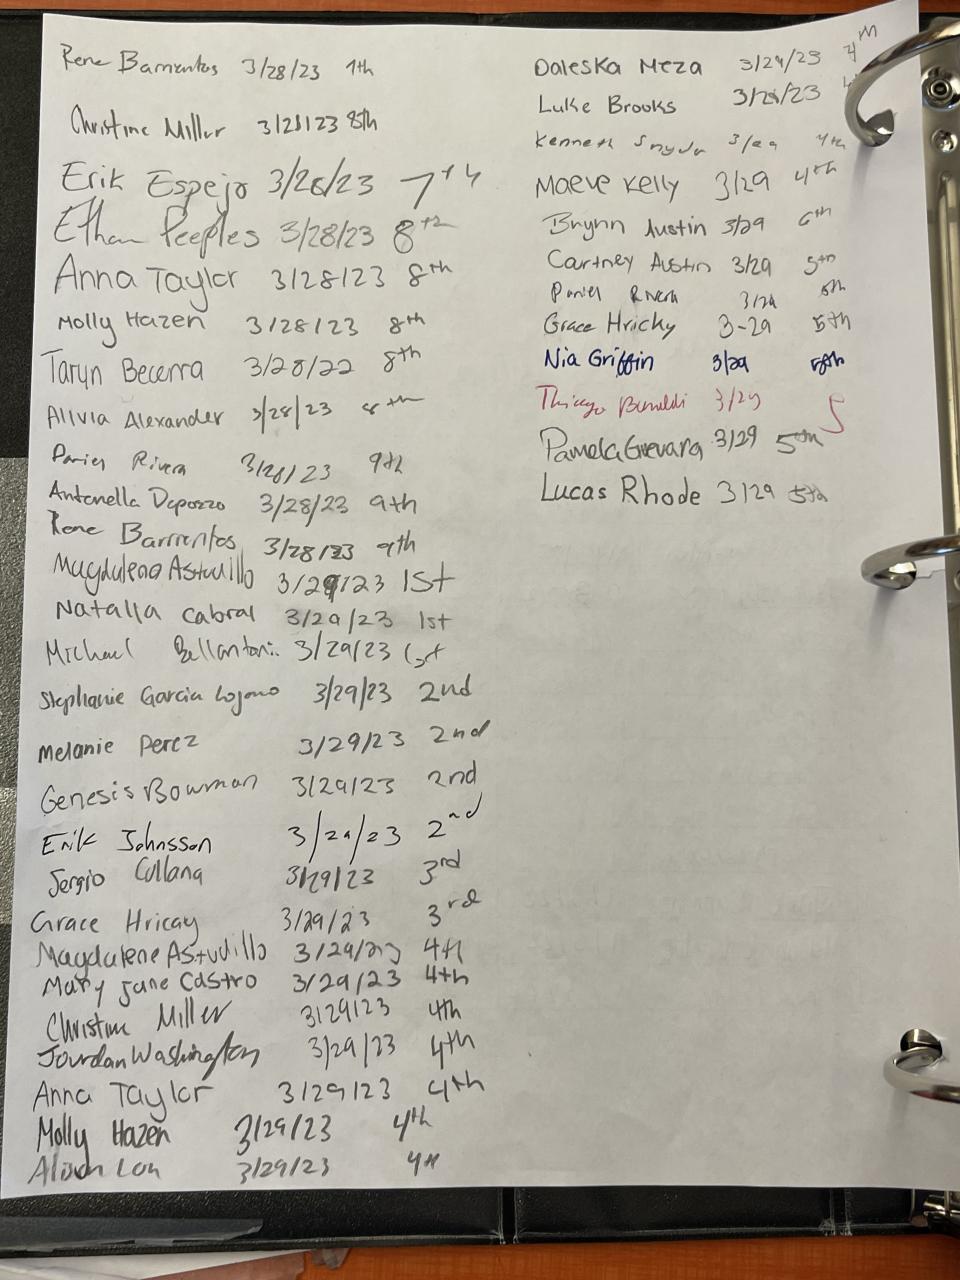 Rene Barrientos 3/28/23 9th
Christine Miller 3/28/23 8th
Erik Espejo 3/28/23 7th
Ethan Peeples 3/28/23 8th
Anna Taylor 3/28/23 8th
Molly Hazen 3/28/23 8th
Taryn Becerra 3/28/22 8th
Alivia Alexander 3/28/23 8th
Rivera 3/28/23 9th
Antonella Depozzo 3/28/23 9th
Rene Barrientos 3/28/23 9th
Magdalena Astudillo 3/29/23 1st
Natalia Cabral 3/29/23 1st
Michael Bellantoni 3/29/23 1st
Stephanie Garcia Lozano 3/29/23 2nd
Melanie Perez 3/29/23 2nd
Genesis Bowman 3/29/23 2nd
Erik Johnsson 3/29/23 2nd
Sergio Collana 3/29/23 3rd
Grace Hricay 3/29/23 3rd
Magdalene Astudillo 3/29/23 4th
Mary Jane Castro 3/29/23 4th
Christine Miller 3/29/23 4th
Jourdan Washington 3/29/23 4th
Anna Taylor 3/29/23 4th
Molly Hazen 3/29/23 4th
3/29/23 4th
Daleska Meza 3/29/23 4th
Luke Brooks 3/29/23
Kenneth 3/29 4th
Maeve Kelly 3/29 4th
Brynn Austin 3/29 6th
Cartney Austin 3/29 5th
Rivera 3/29 5th
Grace Hricky 3-29 5th
Nia Griffin 3/29 5th
Thiago 3/29 5
Pamela Guevara 3/29 5th
Lucas Rhode 3/29 5th